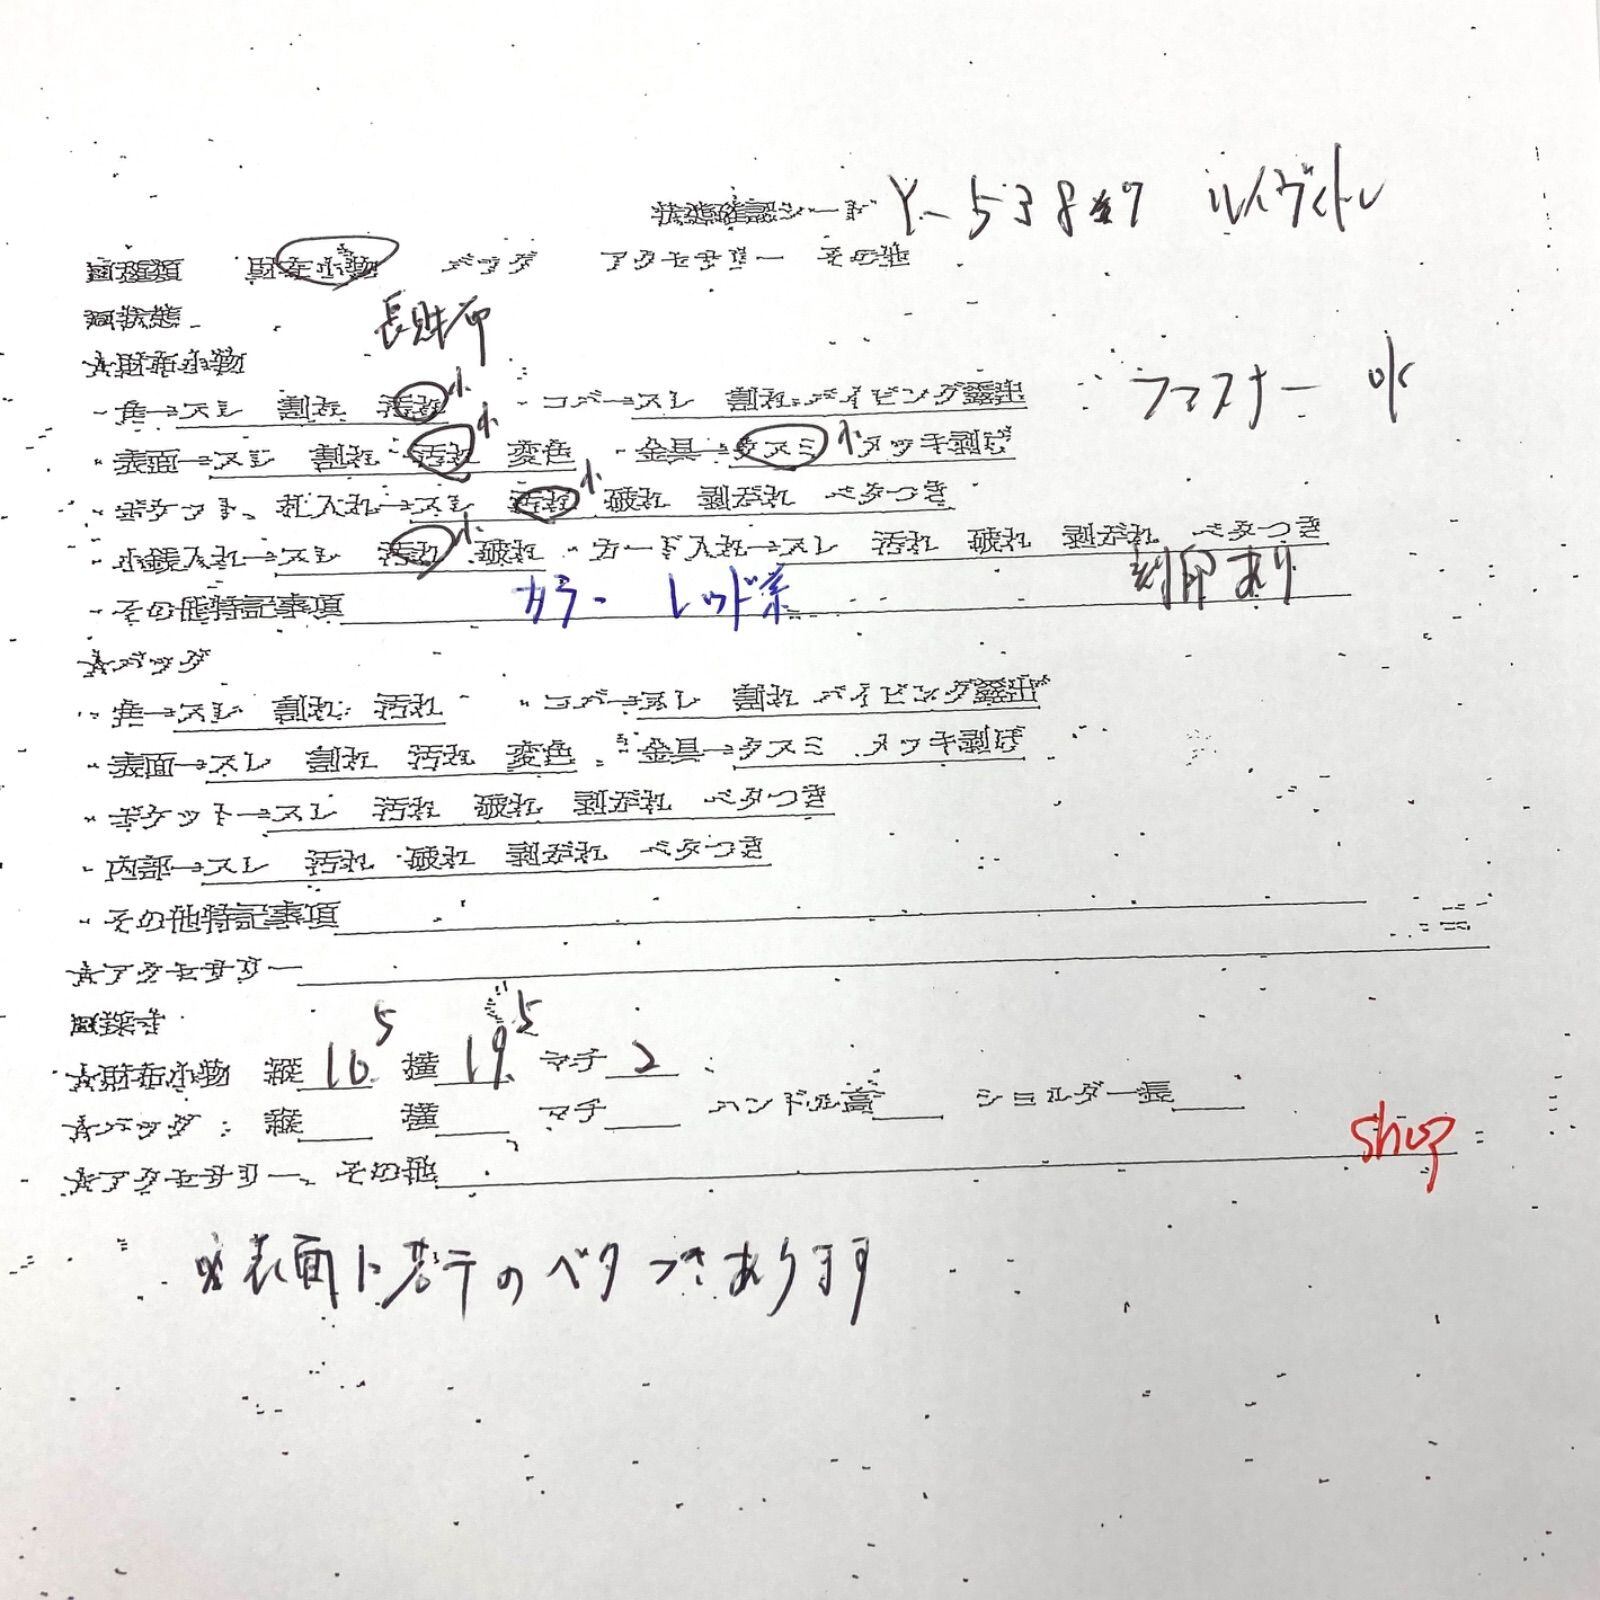 状態確認シート Y-53897 ルイヴィトン
■種類 財布小物 バッグ アクセサリー その他
■状態
長財布
☆財布小物
・角→スレ 割れ 汚れ小 ・コバ→スレ 割れ パイピング露出
ファスナー ok
・表面→スレ 割れ 汚れ小 変色 ・金具→クスミ小 メッキ剥げ
・ポケット、札入れ→スレ 汚れ小 破れ 剥がれ ベタつき
・小銭入れ→スレ 汚れ小 破れ ・カード入れ→スレ 汚れ 破れ 剥がれ ベタつき
・その他特記事項 カラー レッド系 刻印あり
☆バッグ
・角→スレ 割れ 汚れ ・コバ→スレ 割れ パイピング露出
・表面→スレ 割れ 汚れ 変色 ・金具→クスミ メッキ剥げ
・ポケット→スレ 汚れ 破れ 剥がれ ベタつき
・内部→スレ 汚れ 破れ 剥がれ ベタつき
・その他特記事項
☆アクセサリー
■採寸
☆財布小物 縦 10.5 横 19.5 マチ 2
☆バッグ 縦 横 マチ ハンドル高 ショルダー長
shop
☆アクセサリー、その他
※表面に若干のベタつきあります